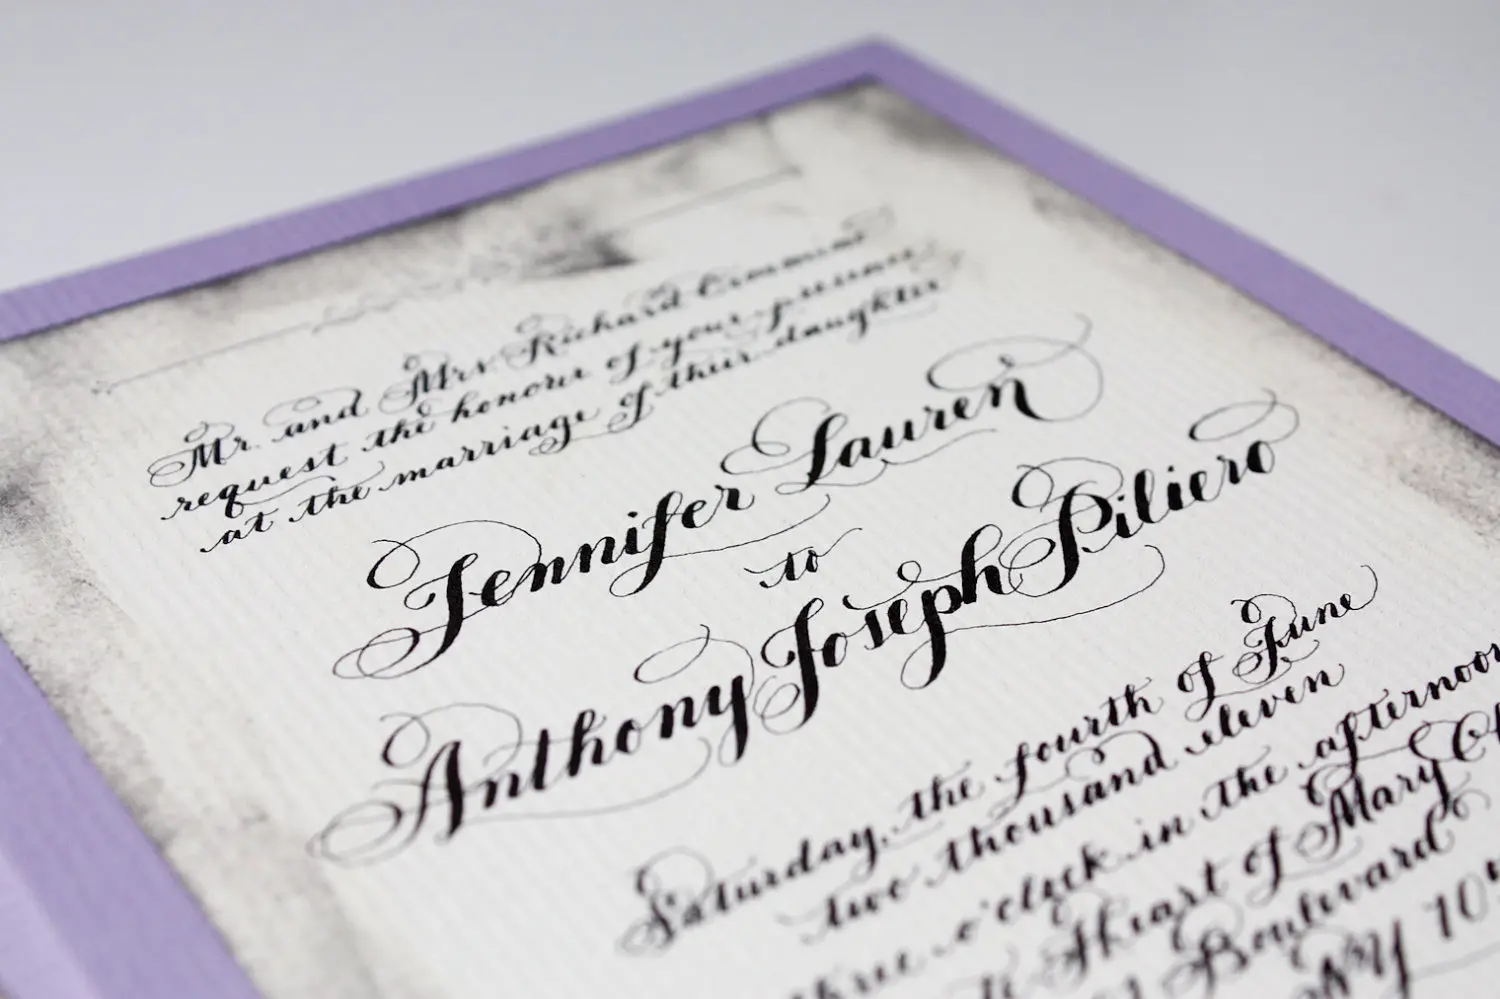 Mr. and Mrs. Richard
request the honour of your presence
at the marriage of their daughter
Jennifer Lauren
to
Anthony Joseph Piliero
Saturday, the fourth of June
two thousand eleven
three o'clock in the afternoon
Heart of Mary
Boulevard
NY 10